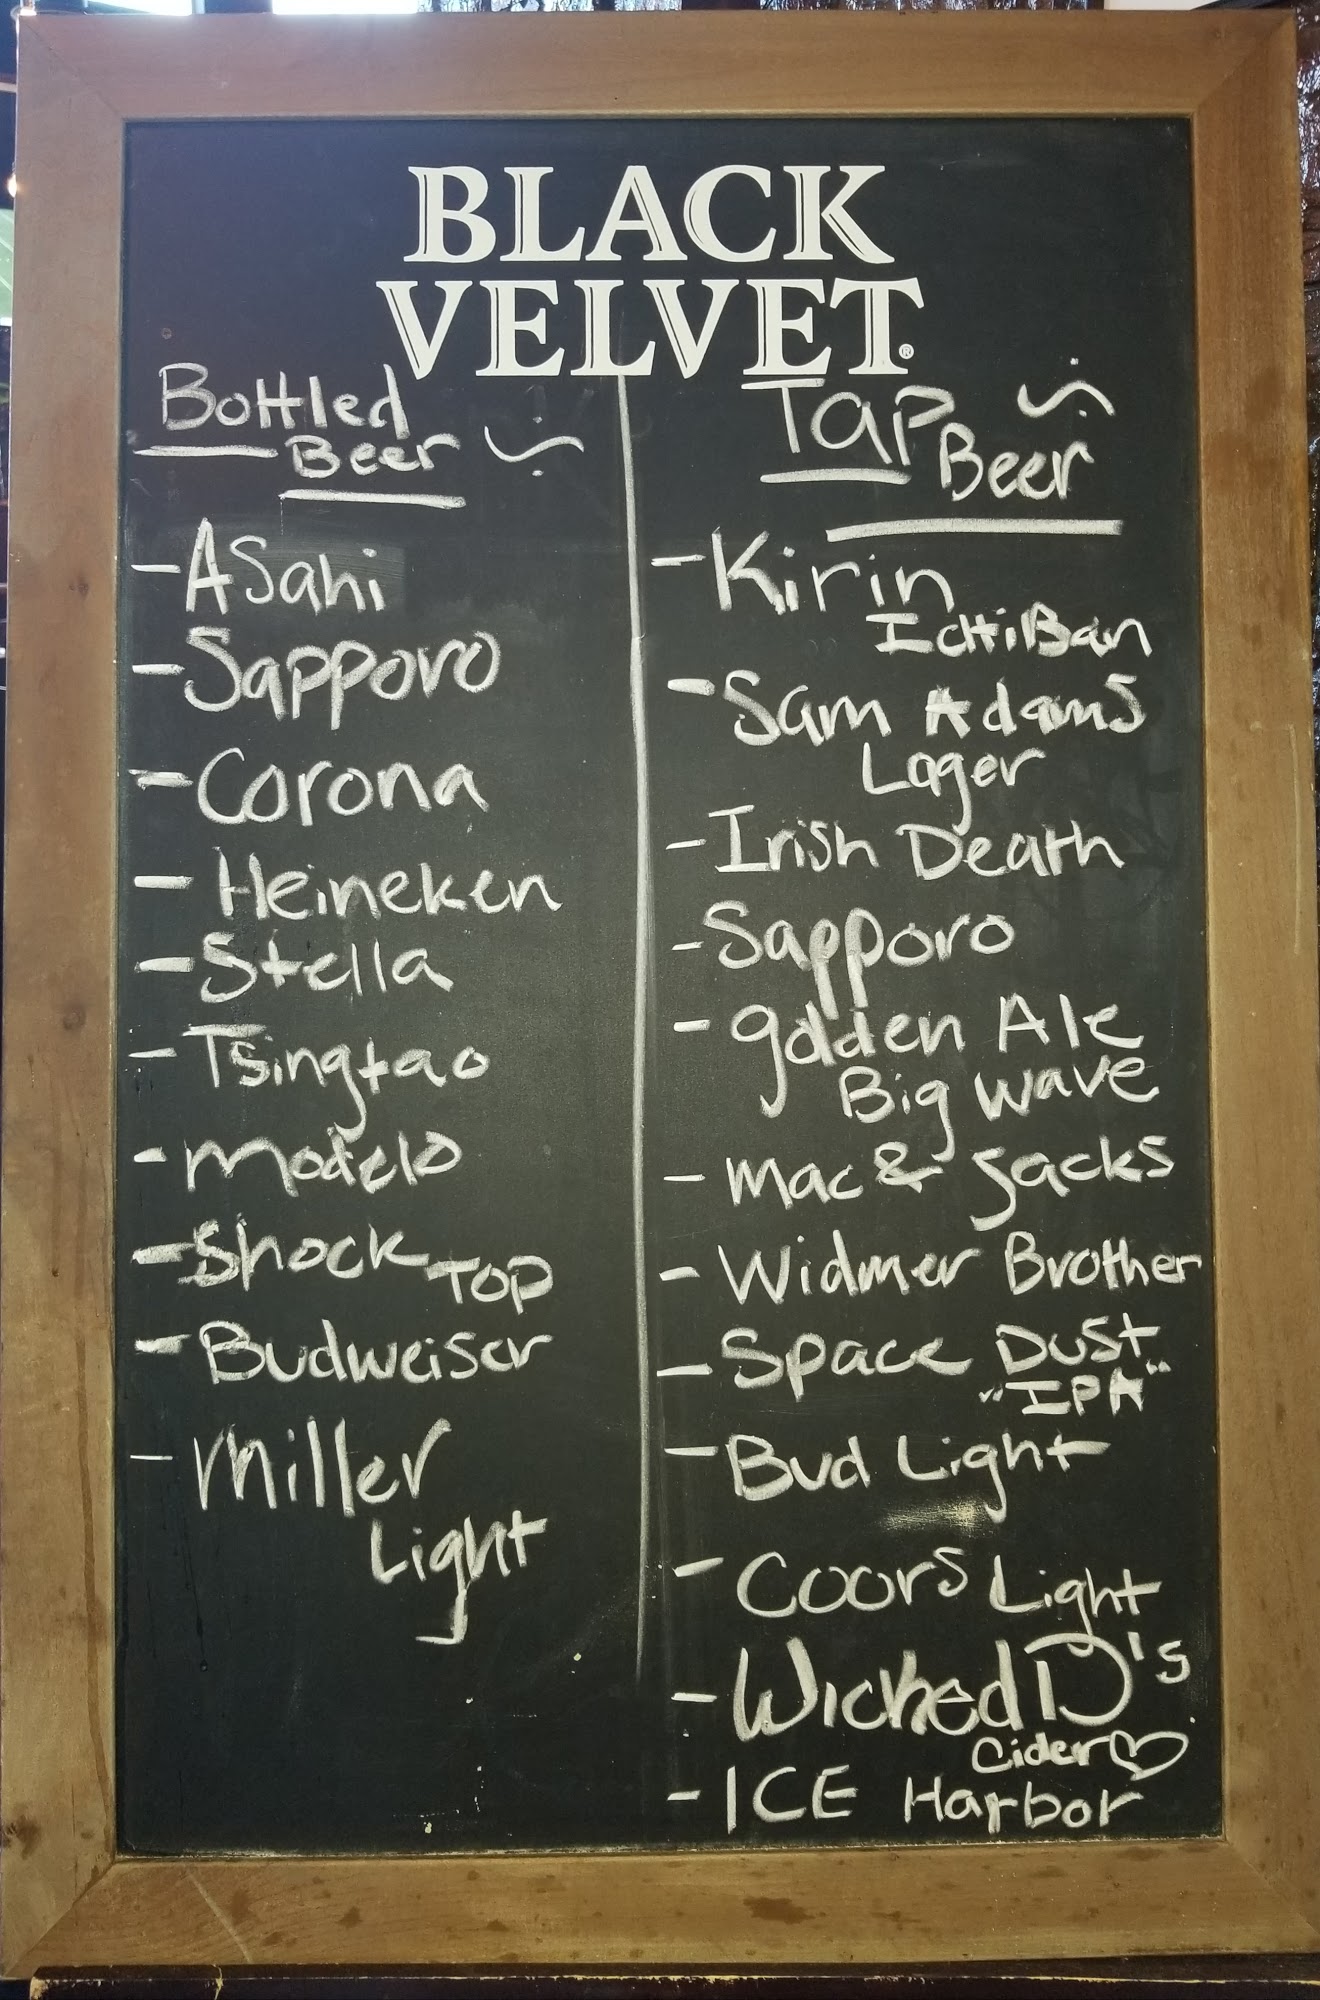 BLACK
VELVET®
Bottled
Beer
- Asahi
- Sapporo
- Corona
- Heineken
- Stella
- Tsingtao
- Modelo
- Shock Top
- Budweiser
- Miller
Light
Tap
Beer
- Kirin
IchiBan
- Sam Adams
Lager
- Irish Death
- Sapporo
- golden Ale
Big Wave
- Mac & Jacks
- Widmer Brother
- Space Dust
"IPA"
- Bud Light
- Coors Light
- Wicked D's
Cider♡
- ICE Harbor